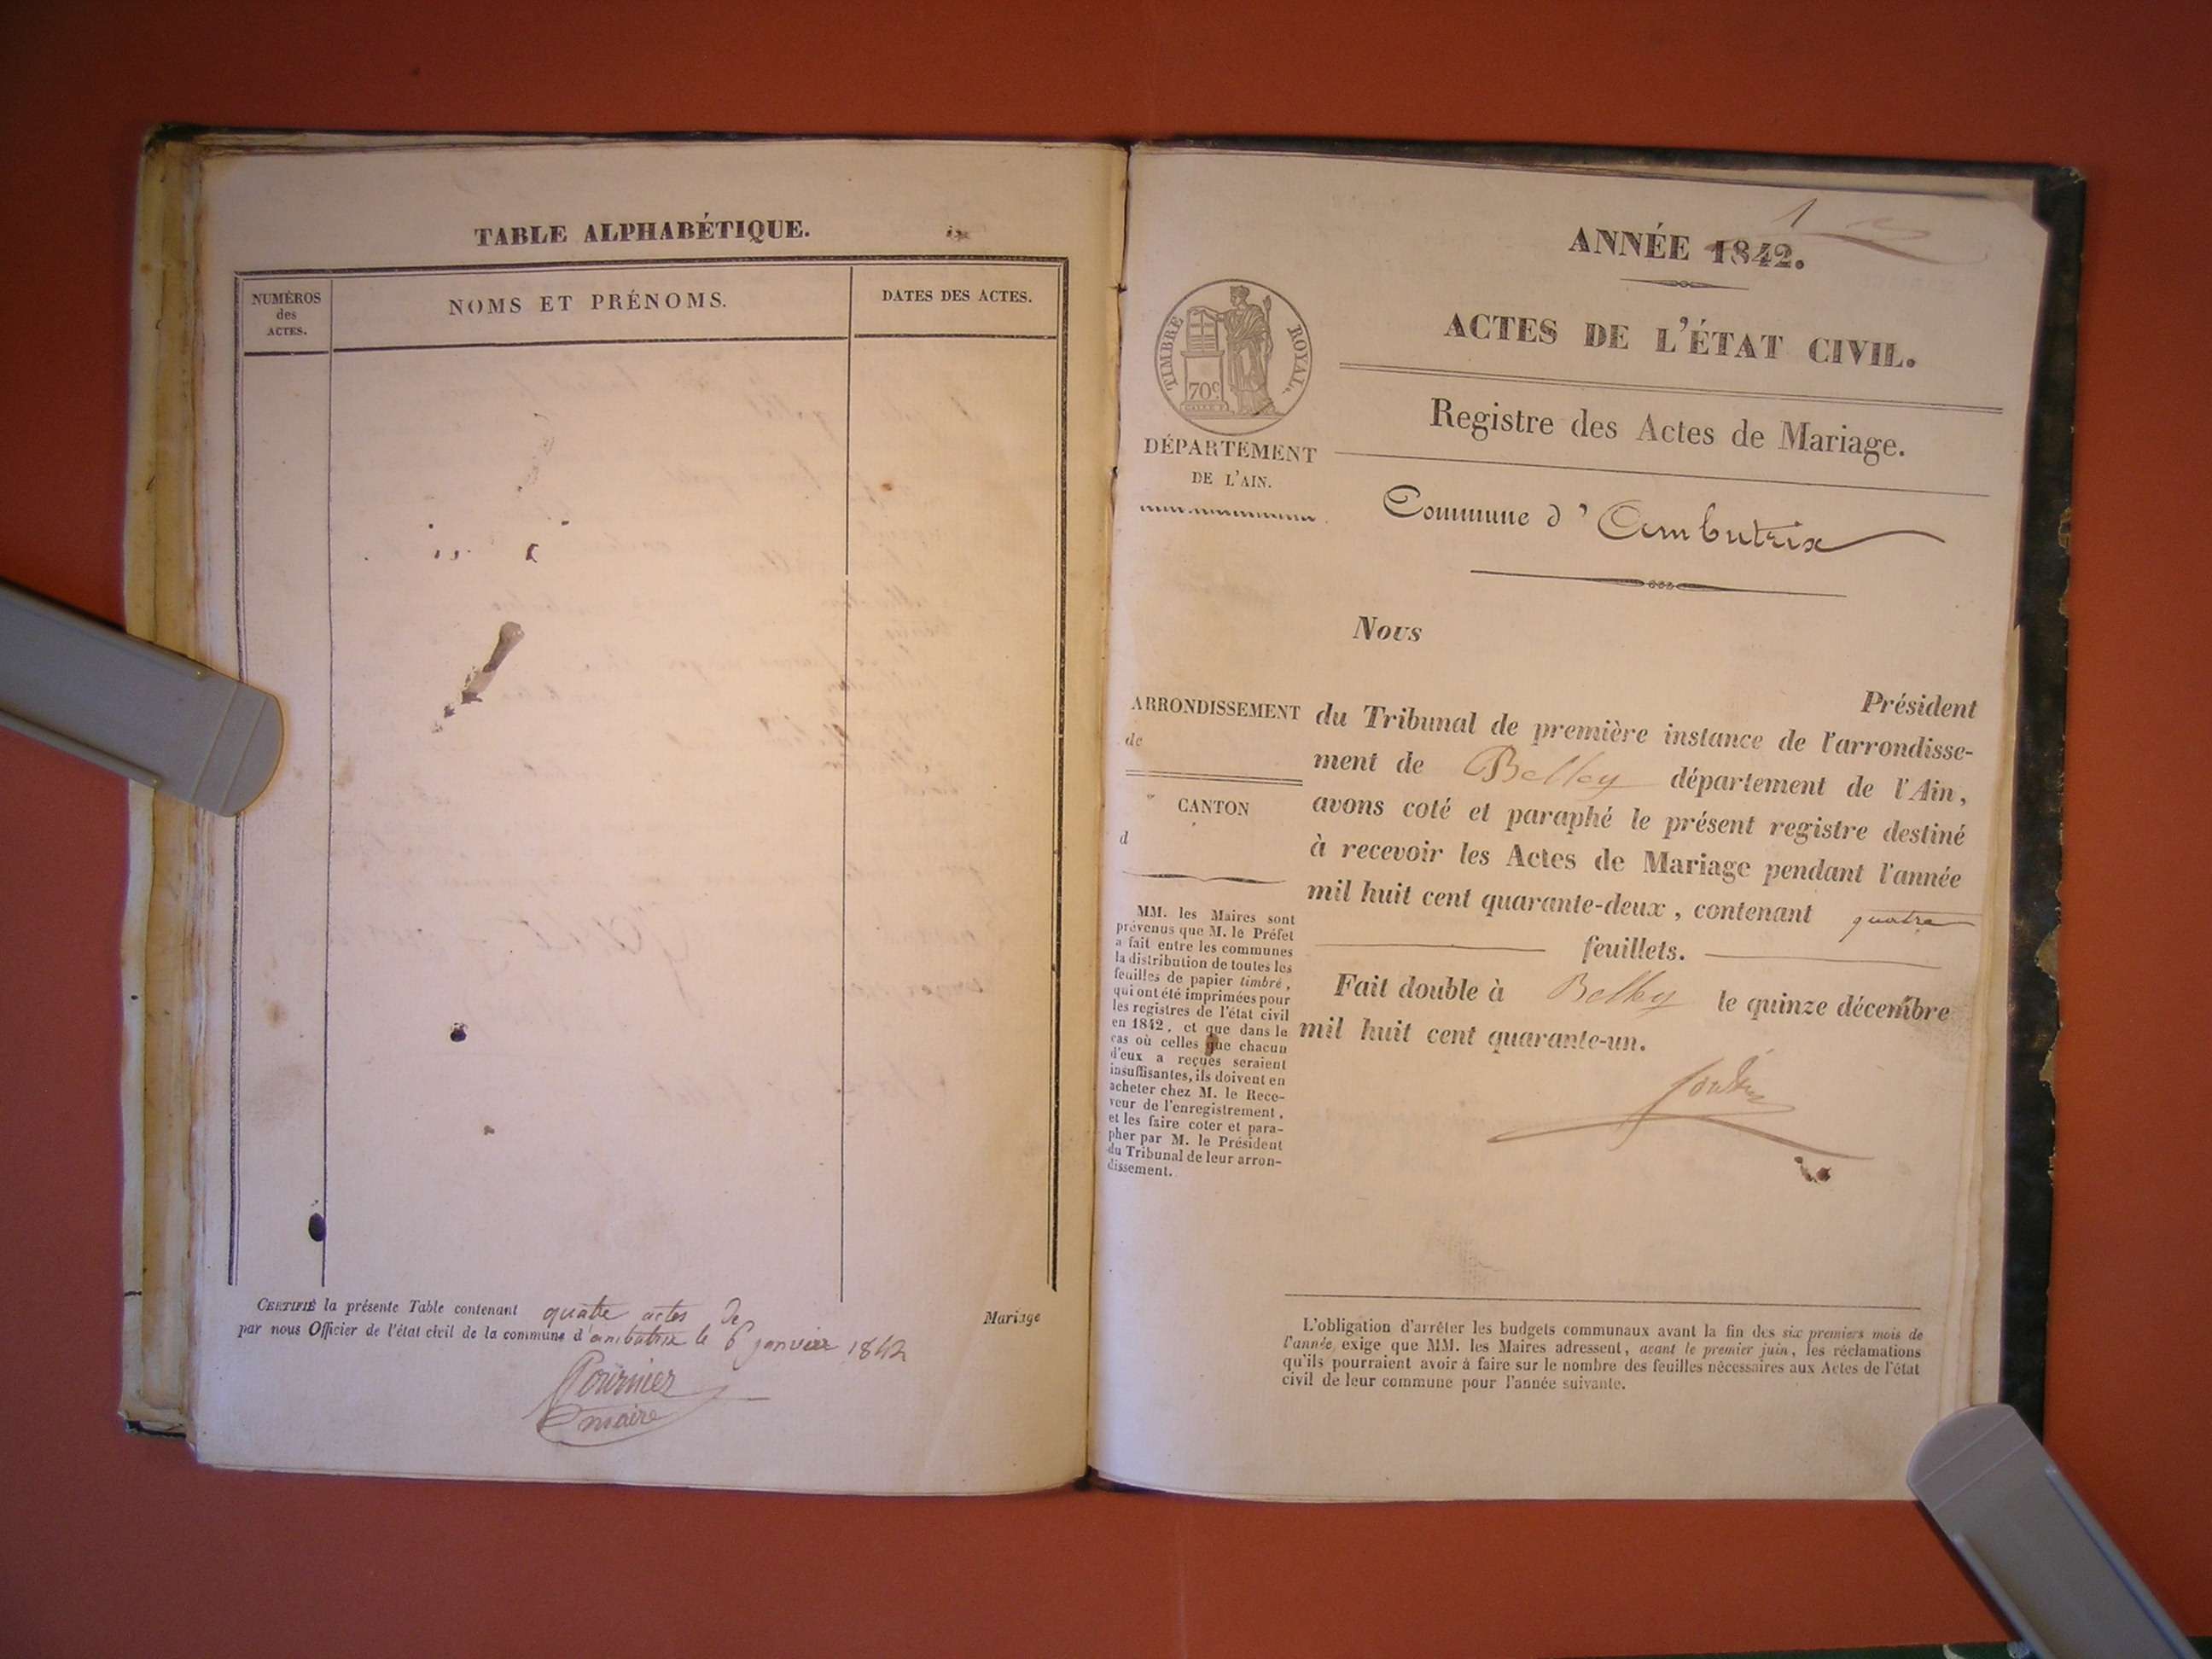 TABLE ALPHABÉTIQUE.
NUMÉROS
des
ACTES.
NOMS ET PRÉNOMS.
DATES DES ACTES.
CERTIFIÉ la présente Table contenant quatre actes de Mariage
par nous Officier de l'état civil de la commune d'ambutrix le 6 janvier 1842
Fournier
maire
1
ANNÉE 1842.
ACTES DE L'ÉTAT CIVIL.
TIMBRE ROYAL
70c
Registre des Actes de Mariage.
DÉPARTEMENT
DE L'AIN.
Commune d'Ambutrix
Nous
Président
ARRONDISSEMENT
de
CANTON
d
du Tribunal de première instance de l'arrondisse-
ment de Belley département de l'Ain,
avons coté et paraphé le présent registre destiné
à recevoir les Actes de Mariage pendant l'année
mil huit cent quarante-deux, contenant quatre
feuillets.
Fait double à Belley le quinze décembre
mil huit cent quarante-un.
MM. les Maires sont
prévenus que M. le Préfet
a fait entre les communes
la distribution de toutes les
feuilles de papier timbré,
qui ont été imprimées pour
les registres de l'état civil
en 1842, et que dans le
cas où celles que chacun
d'eux a reçues seraient
insuffisantes, ils doivent en
acheter chez M. le Rece-
veur de l'enregistrement,
et les faire coter et para-
pher par M. le Président
du Tribunal de leur arron-
dissement.
L'obligation d'arrêter les budgets communaux avant la fin des six premiers mois de
l'année, exige que MM. les Maires adressent, avant le premier juin, les réclamations
qu'ils pourraient avoir à faire sur le nombre des feuilles nécessaires aux Actes de l'état
civil de leur commune pour l'année suivante.